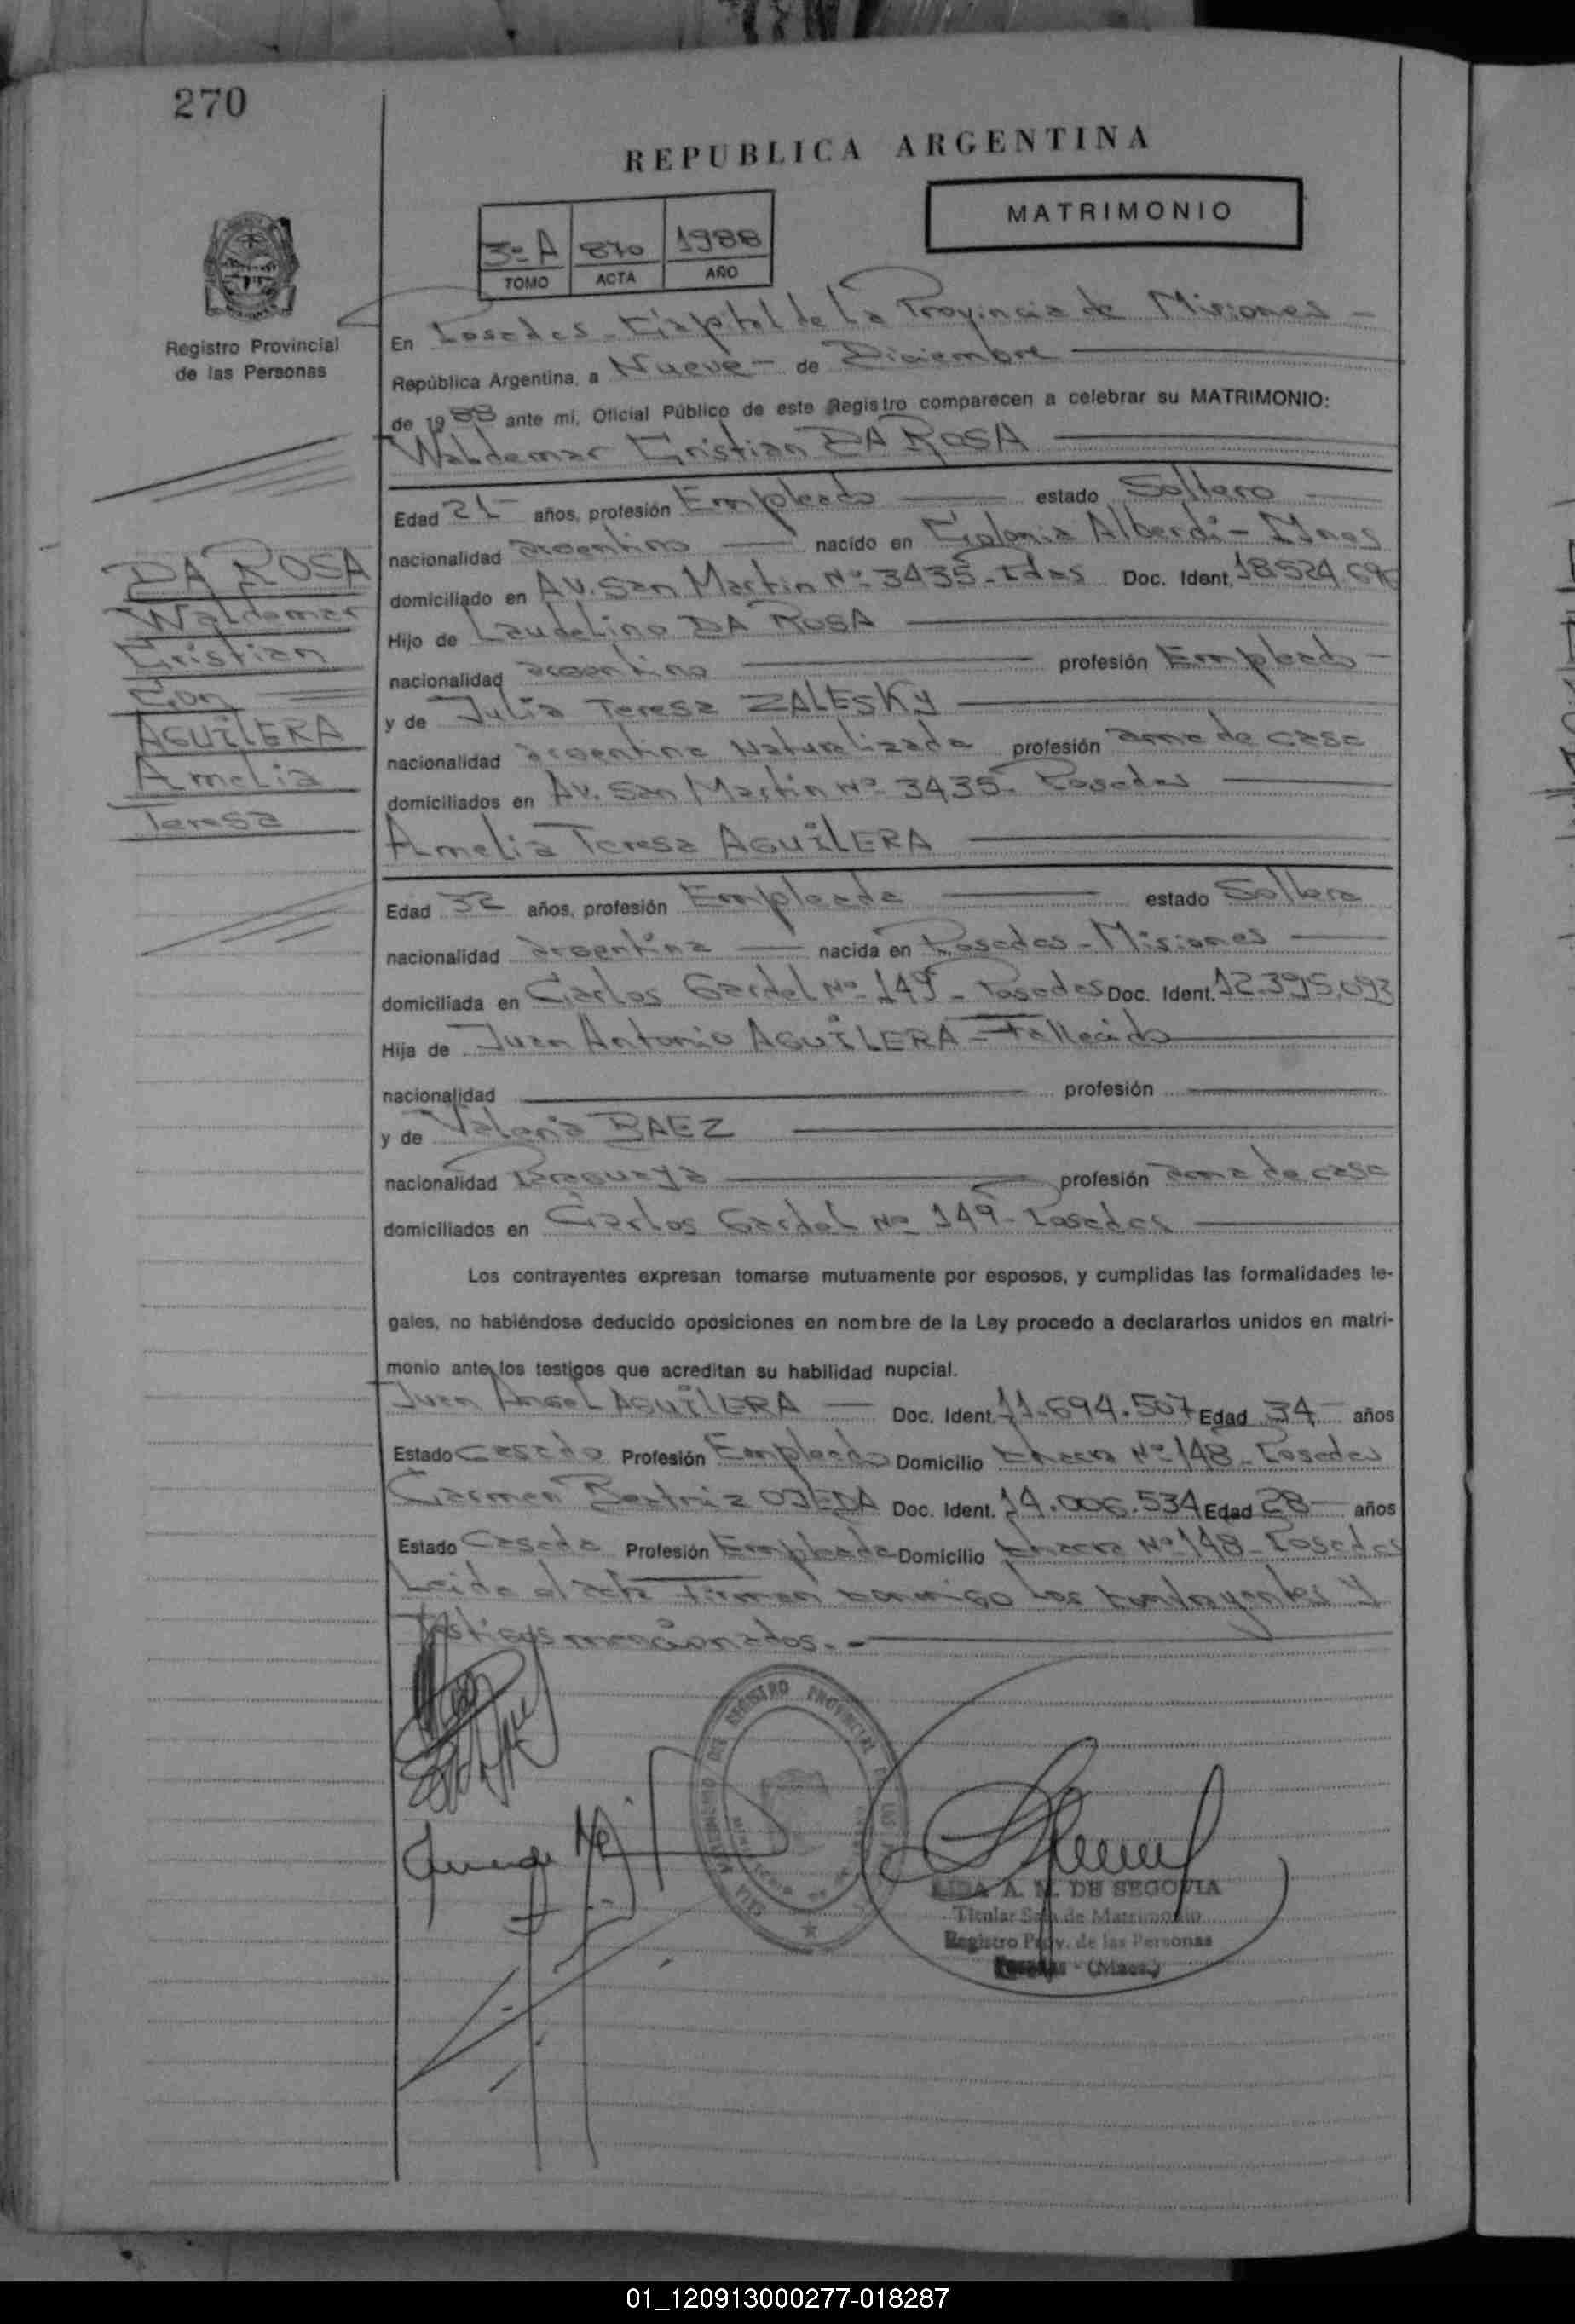 270
REPUBLICA ARGENTINA
MATRIMONIO
3º A 870 1988
TOMO ACTA AÑO
Registro Provincial
de las Personas
En Posadas - Capital de la Provincia de Misiones -
República Argentina, a Nueve - de Diciembre
de 1988 ante mí, Oficial Público de este Registro comparecen a celebrar su MATRIMONIO:
Waldemar Cristian DA ROSA
Edad 21 años, profesión Empleado estado Soltero
nacionalidad argentino nacido en Colonia Alberdi - Mnes
domiciliado en Av. San Martin Nº 3435 - Pdas Doc. Ident. 18.524.696
Hijo de Laudelino DA ROSA
nacionalidad argentino profesión Empleado -
y de Julia Teresa ZALESKY
nacionalidad argentina Naturalizada profesión ama de casa
domiciliados en Av. San Martin Nº 3435 - Posadas
DA ROSA
Waldemar
Cristian
Con
AGUILERA
Amelia
Teresa
Amelia Teresa AGUILERA
Edad 32 años, profesión Empleada estado Soltera
nacionalidad argentina nacida en Posadas - Misiones
domiciliada en Carlos Gardel Nº 149 - Posadas Doc. Ident. 12.395.093
Hija de Juan Antonio AGUILERA - Fallecido
nacionalidad profesión
y de Valeria BAEZ
nacionalidad Paraguaya profesión ama de casa
domiciliados en Carlos Gardel Nº 149 - Posadas
Los contrayentes expresan tomarse mutuamente por esposos, y cumplidas las formalidades le-
gales, no habiéndose deducido oposiciones en nombre de la Ley procedo a declararlos unidos en matri-
monio ante los testigos que acreditan su habilidad nupcial.
Juan Angel AGUILERA Doc. Ident. 11.694.567 Edad 34 años
Estado Casado Profesión Empleado Domicilio Chacra Nº 148 - Posadas
Carmen Beatriz OJEDA Doc. Ident. 14.006.534 Edad 28 años
Estado Casada Profesión Empleada Domicilio Chacra Nº 148 - Posadas
Leida el acta Firman conmigo los contrayentes y
testigos mencionados. -
REGISTRO PROVINCIAL DE LAS
LIDA A. M. DE SEGOVIA
Titular Sala de Matrimonio
Registro Prov. de las Personas
Posadas - (Mnes.)
01_120913000277-018287